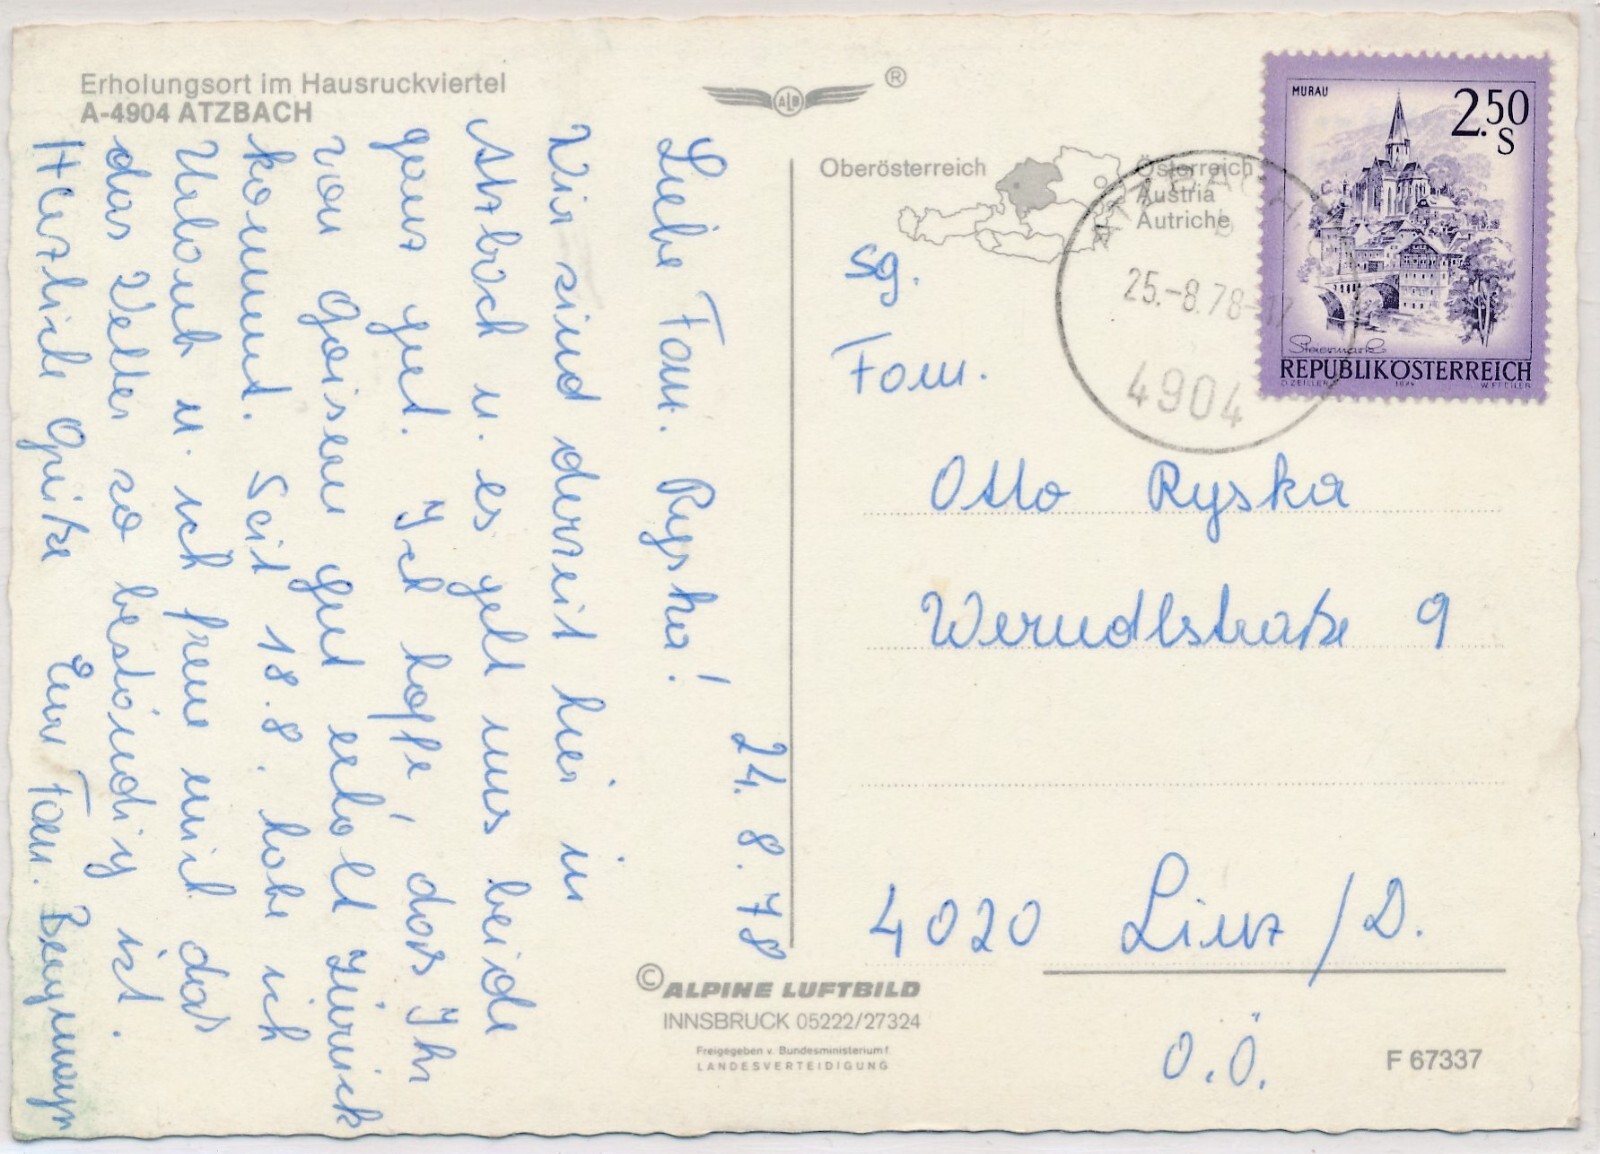 Erholungsort im Hausruckviertel
A-4904 ATZBACH
ALB
®
24. 8. 78
Liebe Fam. Ryska!
Wir sind derzeit hier in
Atzbach u. es geht uns beide
ganz gut. Ich hoffe, das Ihr
von Goisern gut erholt zürück
kommt. Seit 18.8. habe ich
Urlaub u. ich freue mich das
das Wetter so beständig ist.
Herzliche Grüße Eure Fam.
Oberösterreich
Österreich
Austria
Autriche
ATZBACH
25.-8.78-17
4904
MURAU
2.50
S
Steiermark
REPUBLIK ÖSTERREICH
O. ZEILLER 1974 W. PFEILER
Sg.
Fam.
Otto Ryska
Werndlstraße 9
4020 Linz / D.
O.Ö.
© ALPINE LUFTBILD
INNSBRUCK 05222/27324
Freigegeben v. Bundesministerium f.
LANDESVERTEIDIGUNG
F 67337